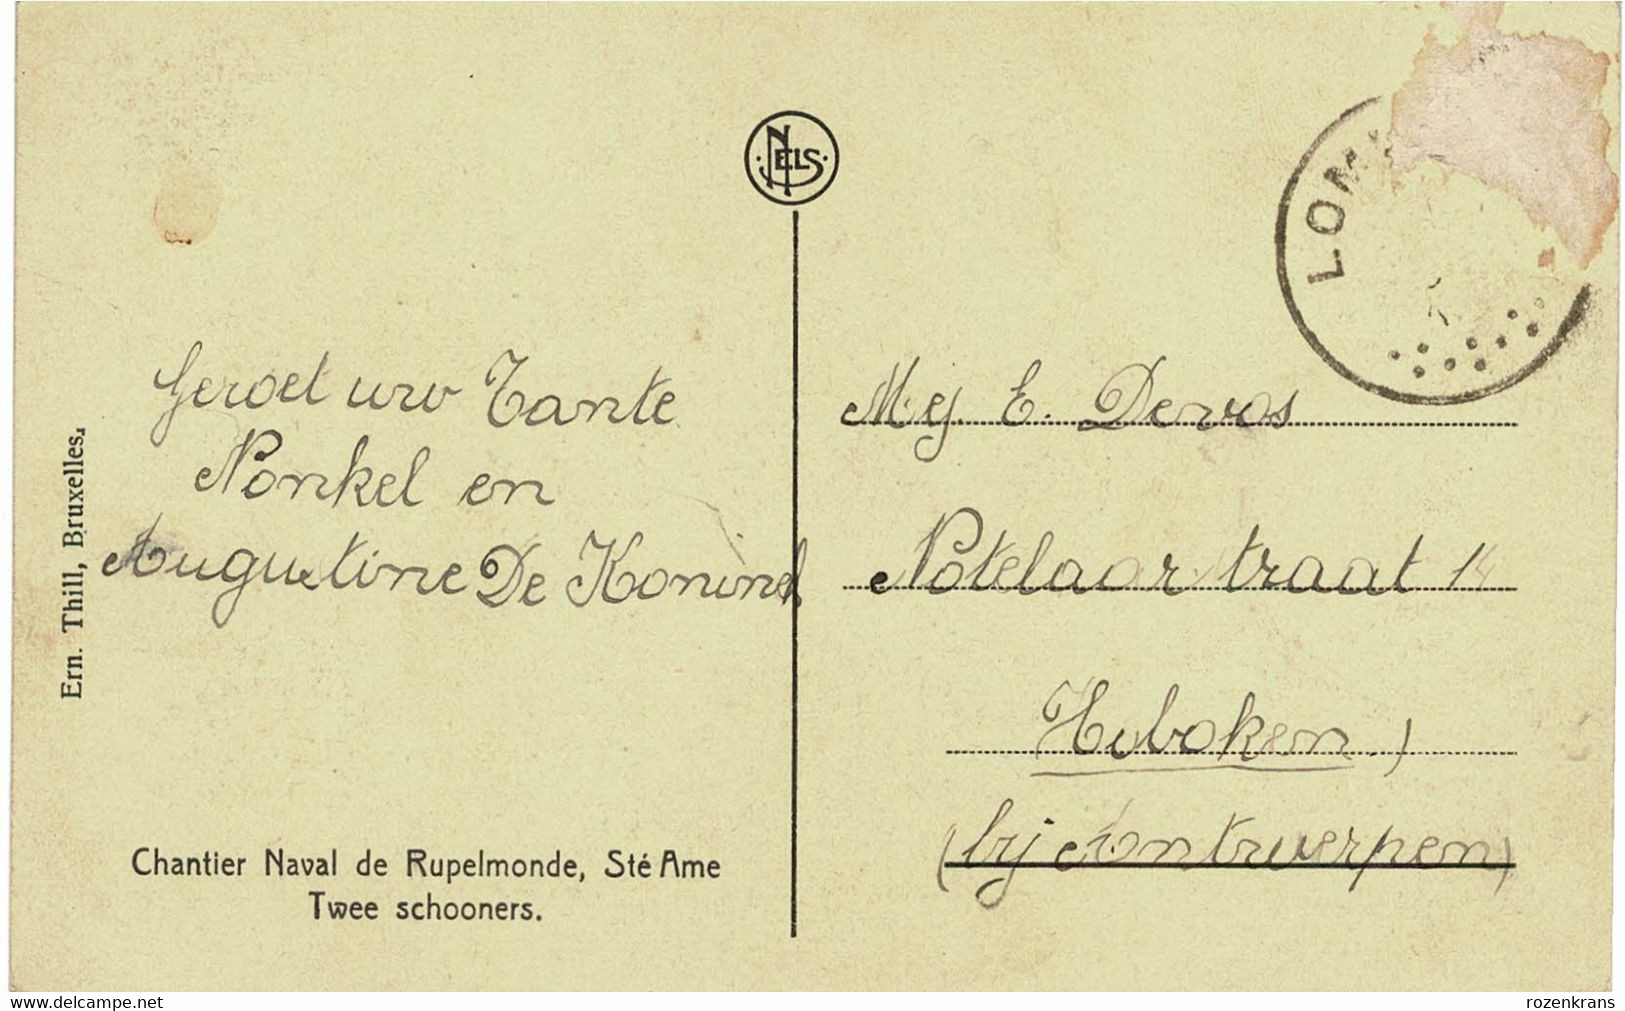 NELS
LOM
Geroet uw Tante
Nonkel en
Augustine De Koninck
Mej. E. Devos
Notelaarstraat 14
Hoboken.)
(bij Antwerpen)
Ern. Thill, Bruxelles.
Chantier Naval de Rupelmonde, Sté Ame
Twee schooners.
www.delcampe.net
rozenkrans